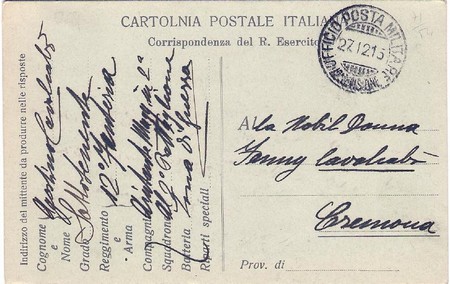 CARTOLNIA POSTALE ITALIANA
Corrispondenza del R. Esercito
UFFICIO POSTA MILITARE
27.12.15
DIVISIONE
Indirizzo del mittente da produrre nelle risposte
Cognome e Nome Cavalcabò
Grado Sottotenente
Reggimento e Arma 12º Fanteria
Compagnia Aiutante Magg. in 2ª
Squadrone al 2º Battaglione
Batteria Zona di Guerra
Riparti speciali
Alla Nobil Donna
Fanny Cavalcabò
Cremona
Prov. di